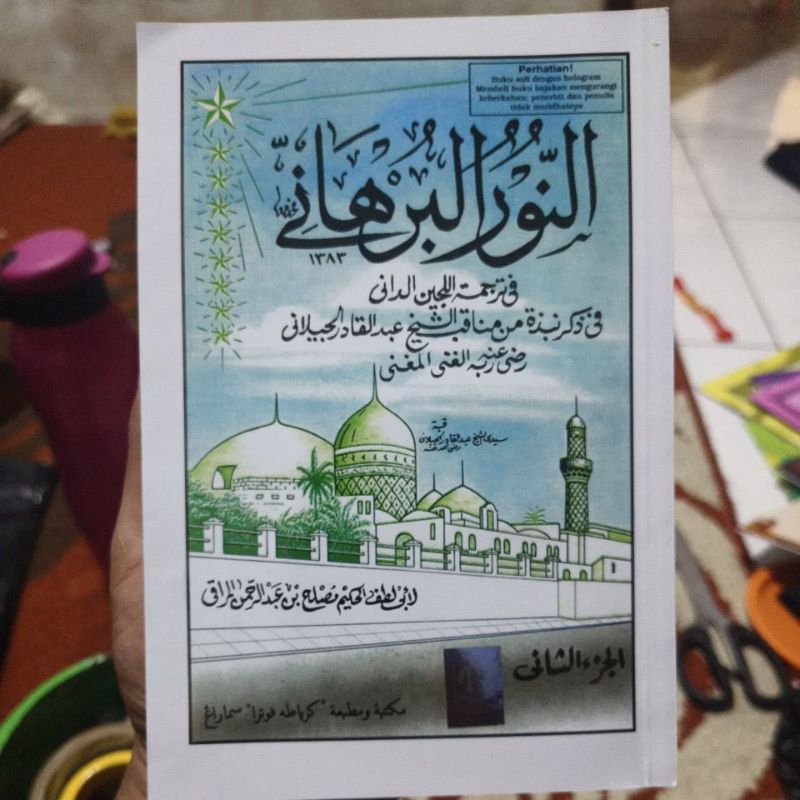 Perhatian!
Buku asli dengan hologram
Membeli buku bajakan mengurangi
keberkahan; penerbit dan penulis
tidak meridhainya
النُّوْرُ الْبُرْهَانِيّ
١٣٨٣
فى ترجمة اللجين الدانى
فى ذكر نبذة من مناقب الشيخ عبد القادر الجيلانى
رضى عنه ربه الغنى المغنى
قبة
سيدى الشيخ عبد القادر الجيلانى
رضى الله عنه
لابى لطف الحكيم مصلح بن عبد الرحمن المراقى
الجزء الثانى
مكتبة ومطبعة "كرياطه فوترا" سماراغ